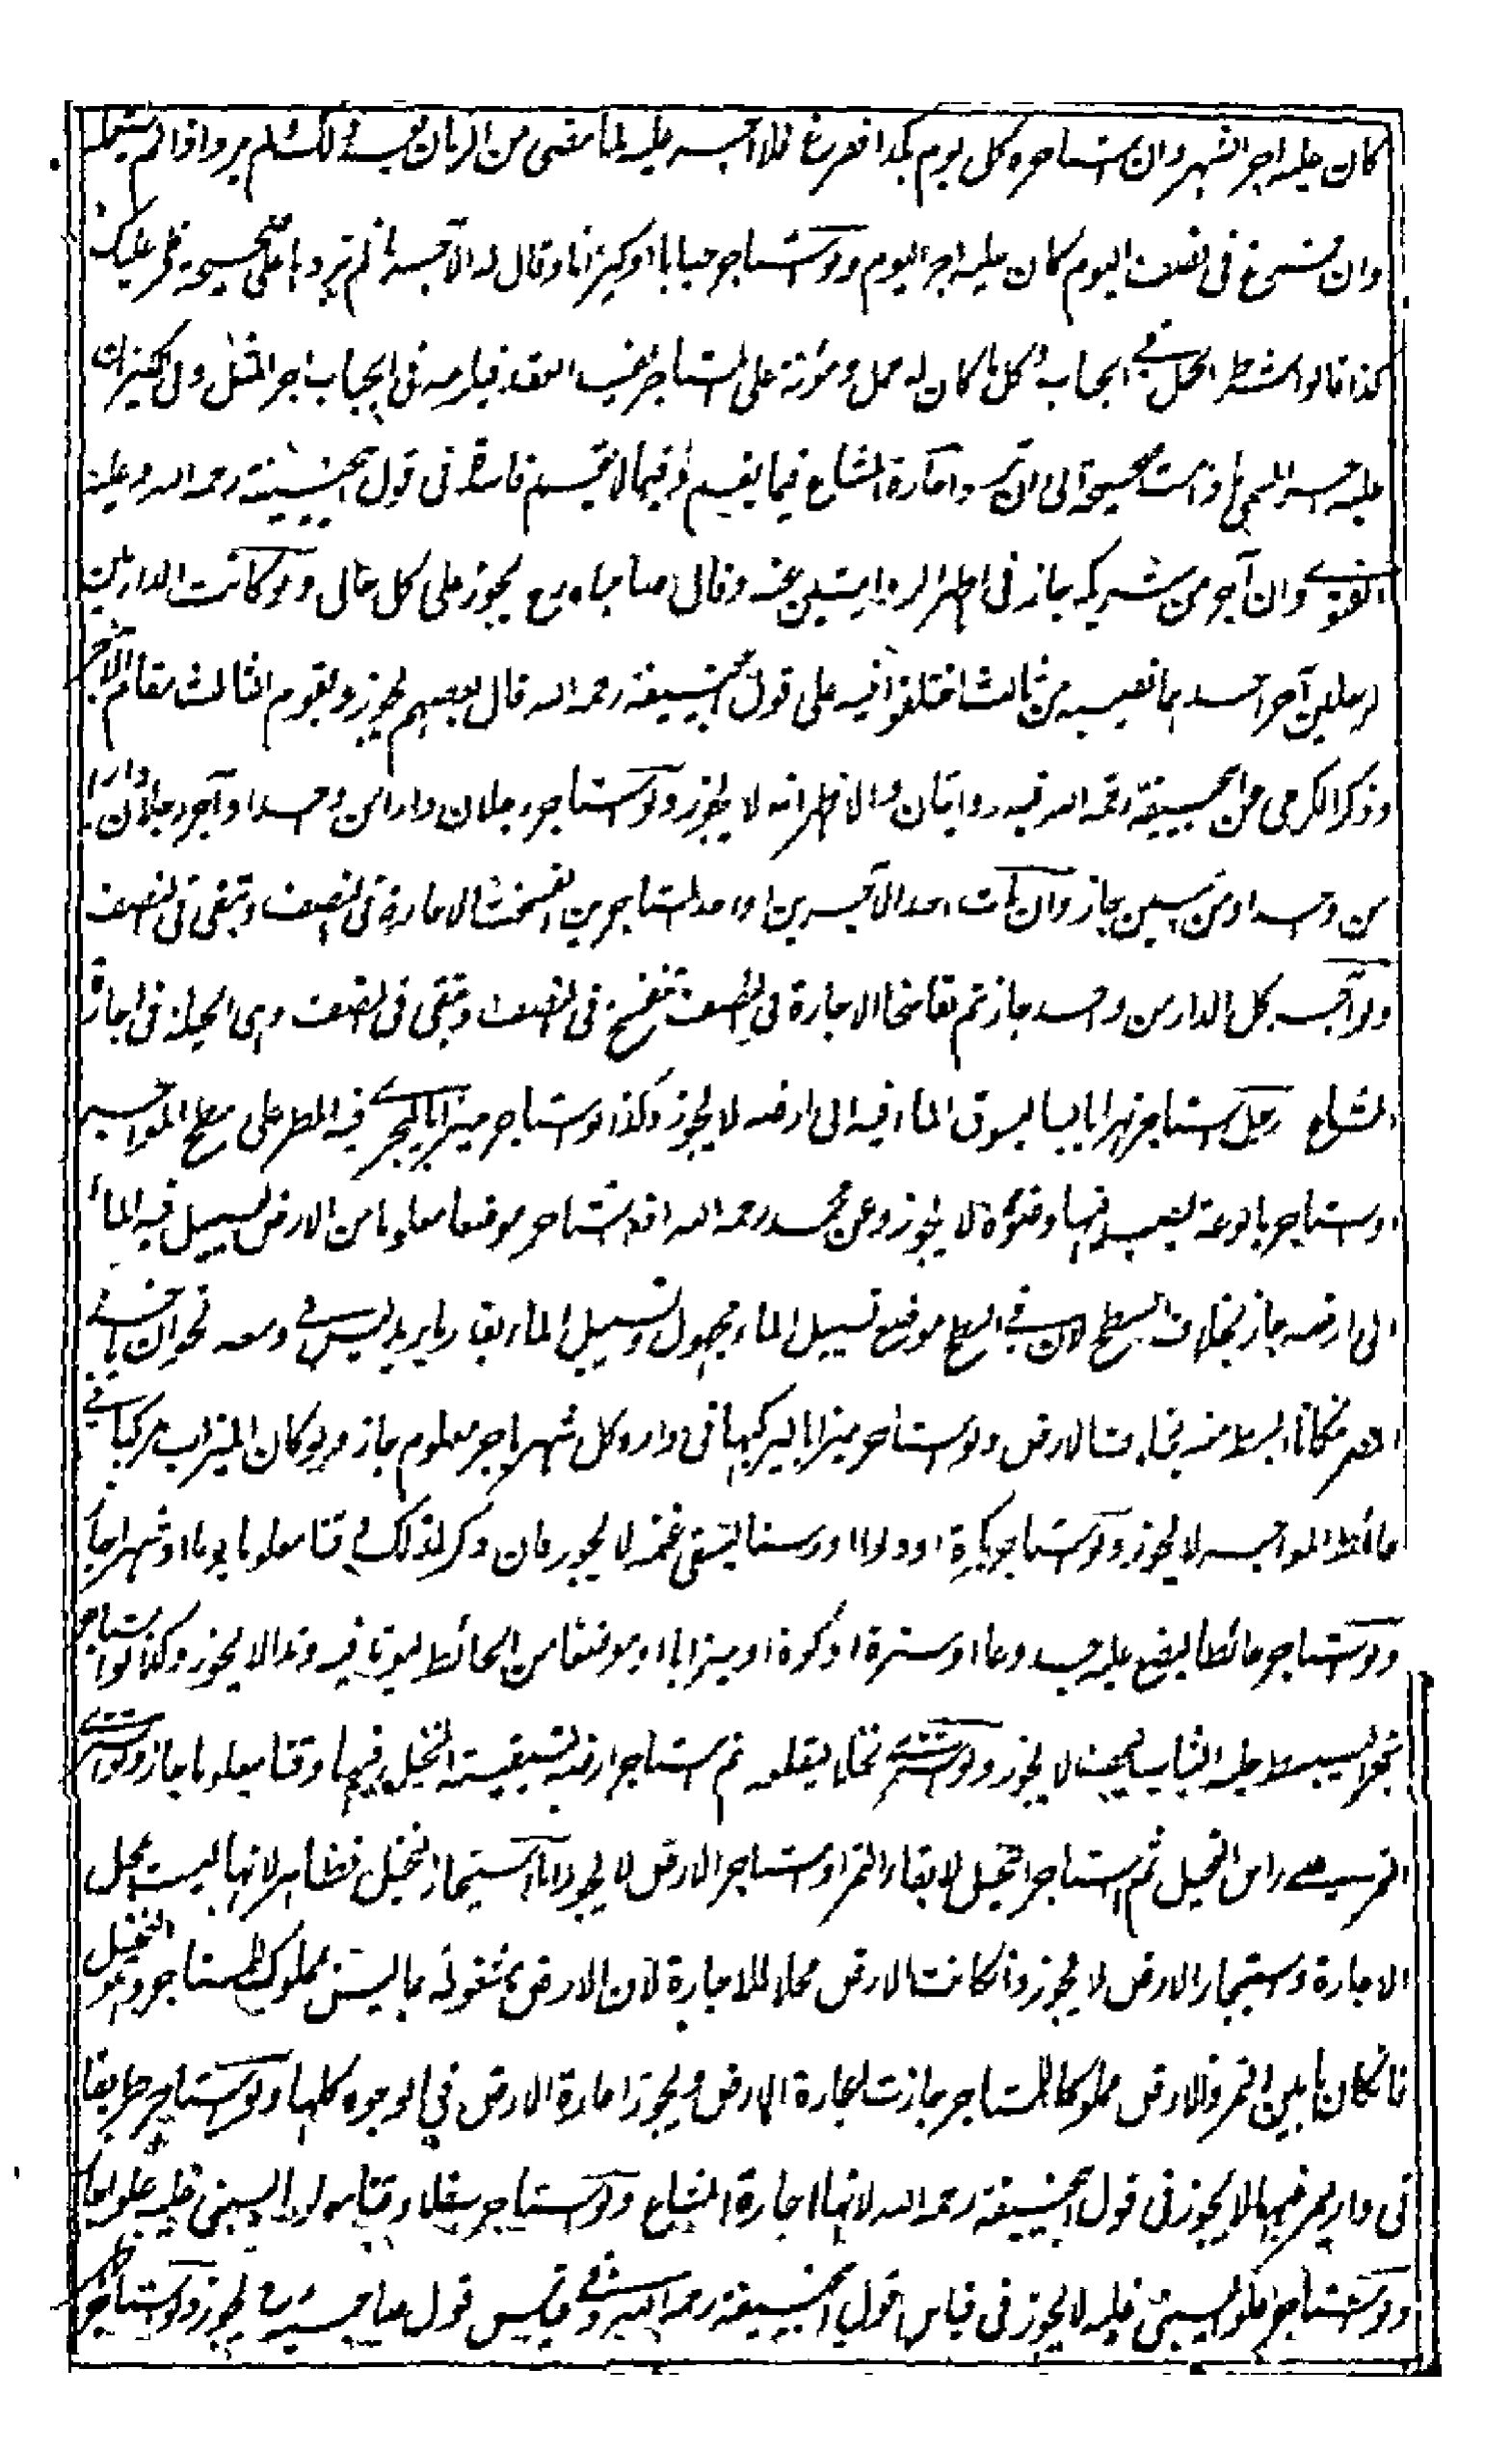 كان عليه اجر الشهر وان استاجره كل يوم بكذا ففرغ فلا اجر عليه لما مضى من الزمان بعد ذلك ولم يرد اذا لم يستعمله
وان فرغ فى نصف اليوم كان عليه اجر اليوم ولو استاجر حبابا او كيزانا وقال له الآجر ان لم تردها على صحيحة فلى عليك
كذا قالوا شرط الحمل فى الحباب وكل ما كان له حمل ومؤنة على المستاجر يفسد العقد فيلزمه فى الحباب اجر المثل وفى الكيزان
عليه اجر المسمى ما دامت صحيحة الى ان تكسر واجارة المشاع فيما يقسم وفيما لا يقسم فاسدة فى قول ابيحنيفة رحمه الله وعليه
الفتوى وان آجر من شريكه جاز فى اظهر الروايتين عنه وقال صاحباه رح يجوز على كل حال ولو كانت الدار بين
رجلين آجر احدهما نصيبه من ثالث اختلفوا فيه على قول ابيحنيفة رحمه الله قال بعضهم يجوز ويقوم الثالث مقام الآجر
وذكر الكرخى عن ابيحنيفة رحمه الله فيه روايتان والاظهر انه لا يجوز ولو استاجر رجلان دارا من واحد او آجر رجلان دارا
من واحد او من اثنين جاز وان مات احد الآجرين او احد المستاجرين انفسخت الاجارة فى النصف وتبقى فى النصف
ولو آجر كل الدار من واحد جاز ثم تفاسخا الاجارة فى النصف تنفسخ فى النصف وتبقى فى النصف وهى الحيلة فى اجارة
المشاع رجل استاجر نهرا يابسا ليسوق الماء فيه الى ارضه لا يجوز وكذا لو استاجر ميزابا ليجرى فيه المطر على سطح المواجر
او استاجر بالوعة ليصب فيها وضوءه لا يجوز وعن محمد رحمه الله اذا استاجر موضعا معلوما من الارض ليسيل فيه الماء
الى ارضه جاز بخلاف السطح لان فى السطح موضع تسييل الماء مجهول وتسييل الماء بقدر ما يريد ليس فى وسعه نحو ان ياخذ
مكانا ابسط منه بخلاف الارض ولو استاجر ميزابا ليركبها فى داره كل شهر باجر معلوم جاز ولو كان الميزاب مركبا فى
حائط المواجر لا يجوز ولو استاجر بكرة او دلوا او رسنا ليسقى غنمه لا يجوز فان ذكر لذلك وقتا معلوما يوما او شهرا جاز
ولو استاجر حائطا ليضع عليه جذوعا او سترة او كوة او ميزابا او موضعا من الحائط ليوتد فيه وتدا لا يجوز وكذا لو استاجر
شجرا ليبسط عليه الثياب لتجف لا يجوز ولو اشترى نخلا ليقلعه ثم استاجر ارضه لتبقية النخل فيها وقتا معلوما جاز ولو اشترى
التمر على راس النخيل ثم استاجر النخيل لابقاء التمر او استاجر الارض لا يجوز اما استيجار النخيل فظاهر لانها ليست محل
الاجارة واستيجار الارض لا يجوز وان كانت الارض محلا للاجارة لان الارض مشغولة بما ليس بمملوك للمستاجر وهو النخيل
فان كان ما بين التمر والارض مملوكا للمستاجر جازت اجارة الارض ويجوز اجارة الارض فى الوجوه كلها ولو استاجر طريقا
فى دار ليمر فيها لا يجوز فى قول ابيحنيفة رحمه الله لانها اجارة المشاع ولو استاجر سفلا وقتا معلوما ليبنى عليه علوا جاز
ولو استاجر علو ليبنى عليه لا يجوز فى قياس قول ابيحنيفة رحمه الله وفى قياس قول صاحبيه رح يجوز ولو استاجر